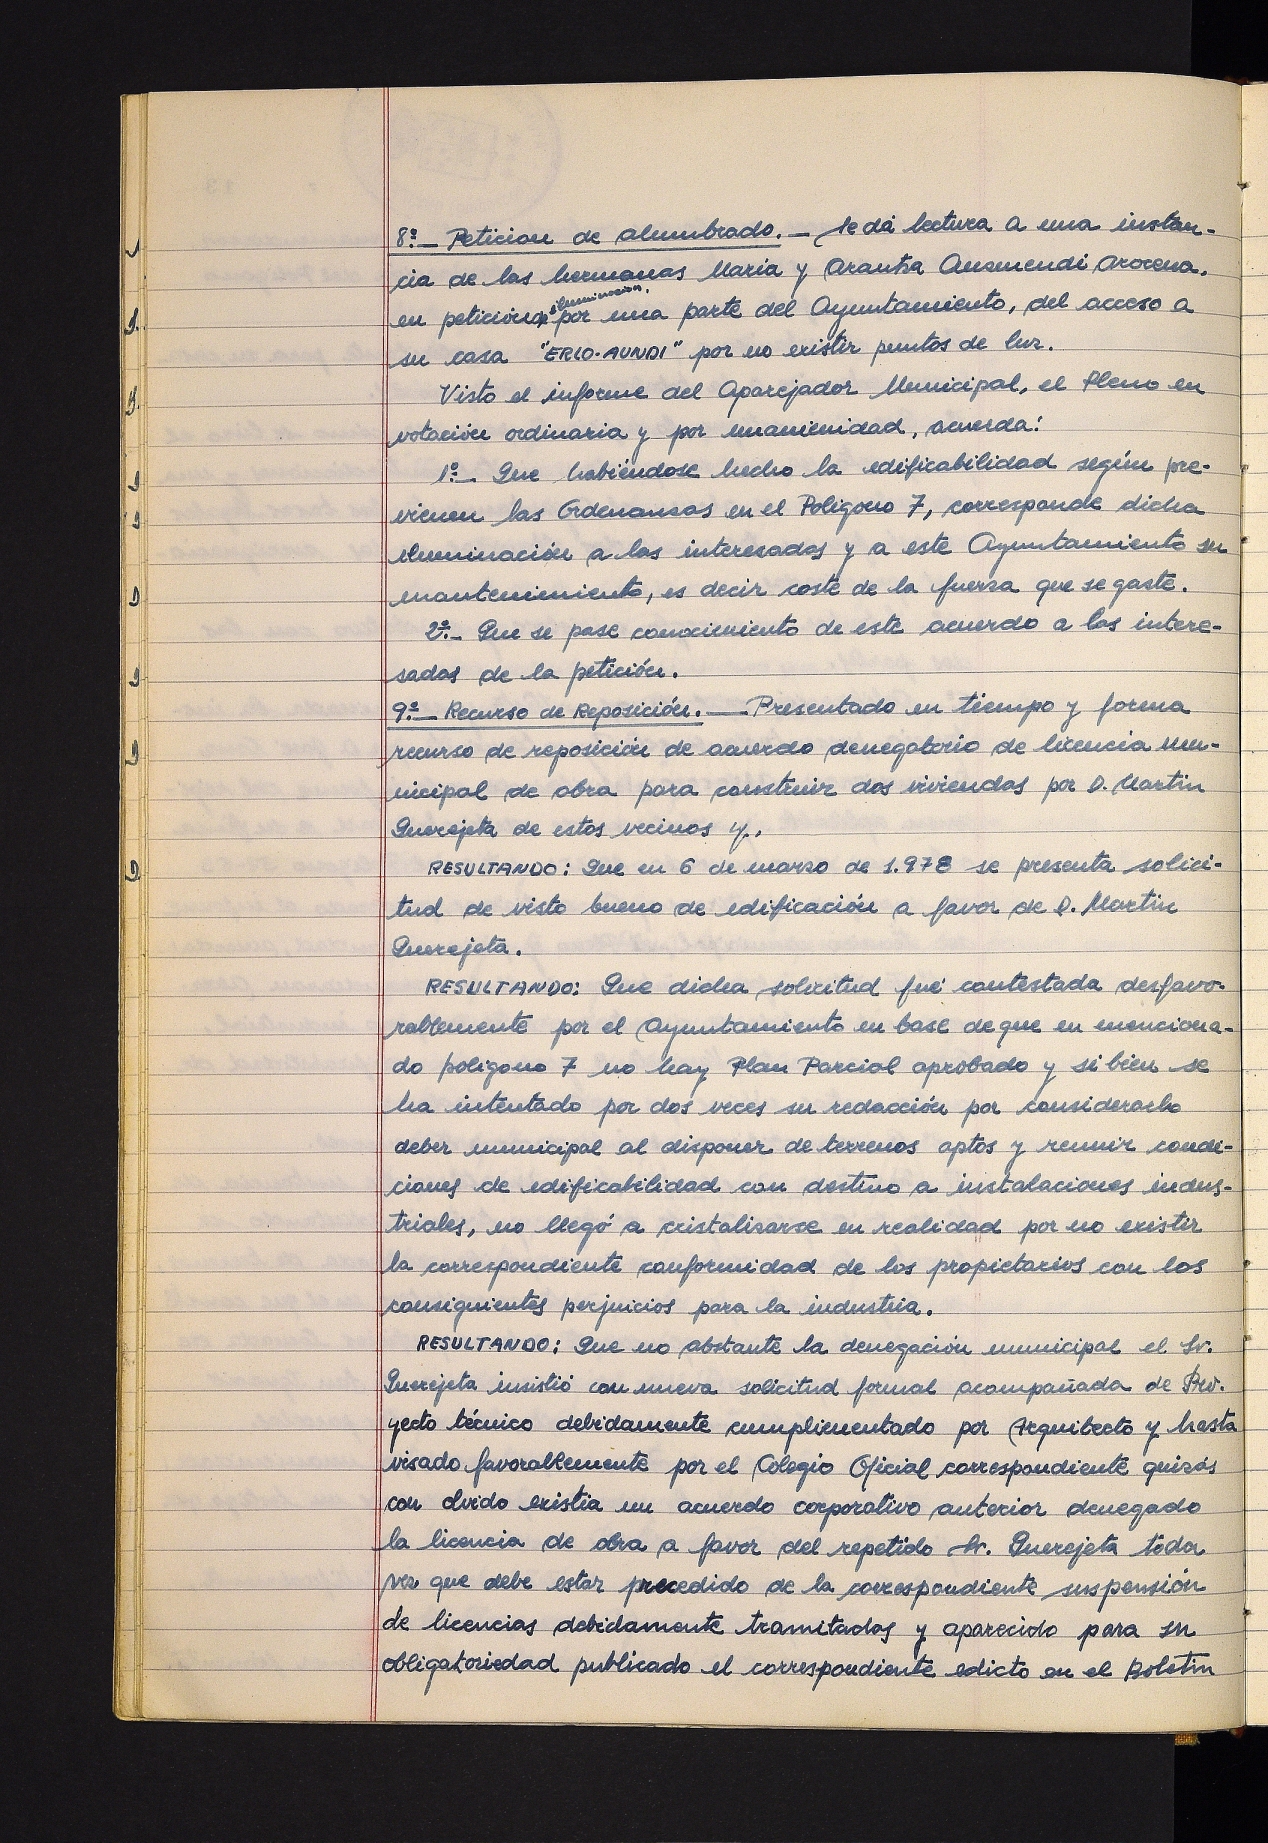 8º.- Peticion de alumbrado. - Se dá lectura a una instan-
cia de las hermanas Maria y Arantxa Ausmendi Arocena,
en petición iluminación, por una parte del Ayuntamiento, del acceso a
su casa "ERLO-AUNDI" por no existir puntos de luz.
Visto el informe del Aparejador Municipal, el Pleno en
votación ordinaria y por unanimidad, acuerda:
1º.- Que habiéndose hecho la edificabilidad según pre-
vienen las Ordenanzas en el Poligono 7, corresponde dicha
iluminación a los interesados y a este Ayuntamiento su
mantenimiento, es decir coste de la fuerza que se gaste.
2º.- Que se pase conocimiento de este acuerdo a los intere-
sados de la petición.
9º.- Recurso de Reposición. - Presentado en tiempo y forma
recurso de reposición de acuerdo denegatorio de licencia mu-
nicipal de obra para construir dos viviendas por D. Martin
Querejeta de estos vecinos y,
RESULTANDO: Que en 6 de marzo de 1.978 se presenta solici-
tud de visto bueno de edificación a favor de D. Martin
Querejeta.
RESULTANDO: Que dicha solicitud fué contestada desfavo-
rablemente por el Ayuntamiento en base de que en menciona-
do poligono 7 no hay Plan Parcial aprobado y si bien se
ha intentado por dos veces su redacción por considerarlo
deber municipal al disponer de terrenos aptos y reunir condi-
ciones de edificabilidad con destino a instalaciones indus-
triales, no llegó a cristalizarse en realidad por no existir
la correspondiente conformidad de los propietarios con los
consiguientes perjuicios para la industria.
RESULTANDO: Que no obstante la denegación municipal el Sr.
Querejeta insistió con nueva solicitud formal acompañada de Pro-
yecto técnico debidamente cumplimentado por Arquitecto y hasta
visado favorablemente por el Colegio Oficial correspondiente quizás
con olvido existia un acuerdo corporativo anterior denegado
la licencia de obra a favor del repetido Sr. Querejeta toda
vez que debe estar precedido de la correspondiente suspensión
de licencias debidamente tramitadas y aparecido para su
obligatoriedad publicado el correspondiente edicto en el Boletin